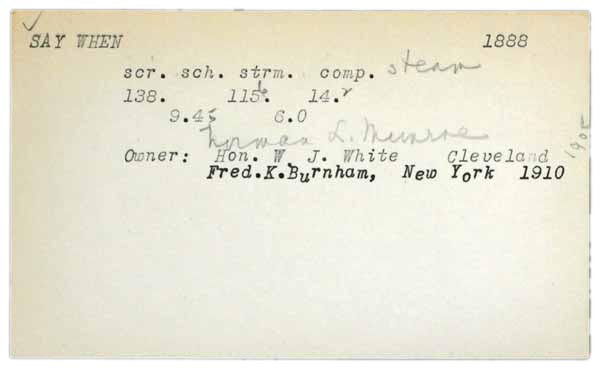 ✓
SAY WHEN 1888
scr. sch. strm. comp. steam
138. 115⁶. 14.²
9.45 6.0
Norman L. Munroe
Owner: Hon. W. J. White Cleveland 1905
Fred.K.Burnham, New York 1910